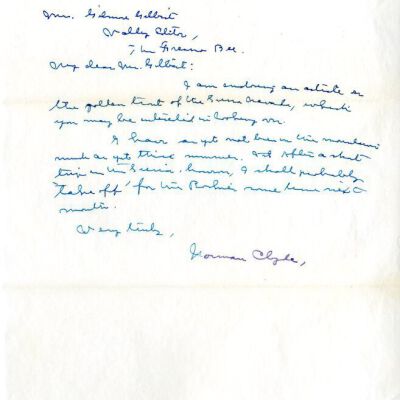 Mr. Gilmore Gilbert
Valley Editor,
The Fresno Bee.
My dear Mr. Gilbert:
I am enclosing an article on
the golden trout of the Sierra Nevada, which
you may be interested in looking over.
I have as yet not been in the mountains
much as yet this summer. After a short
trip in the Sierra, however, I shall probably
"take off" for the Rockies some time next
month.
Very truly,
Norman Clyde,